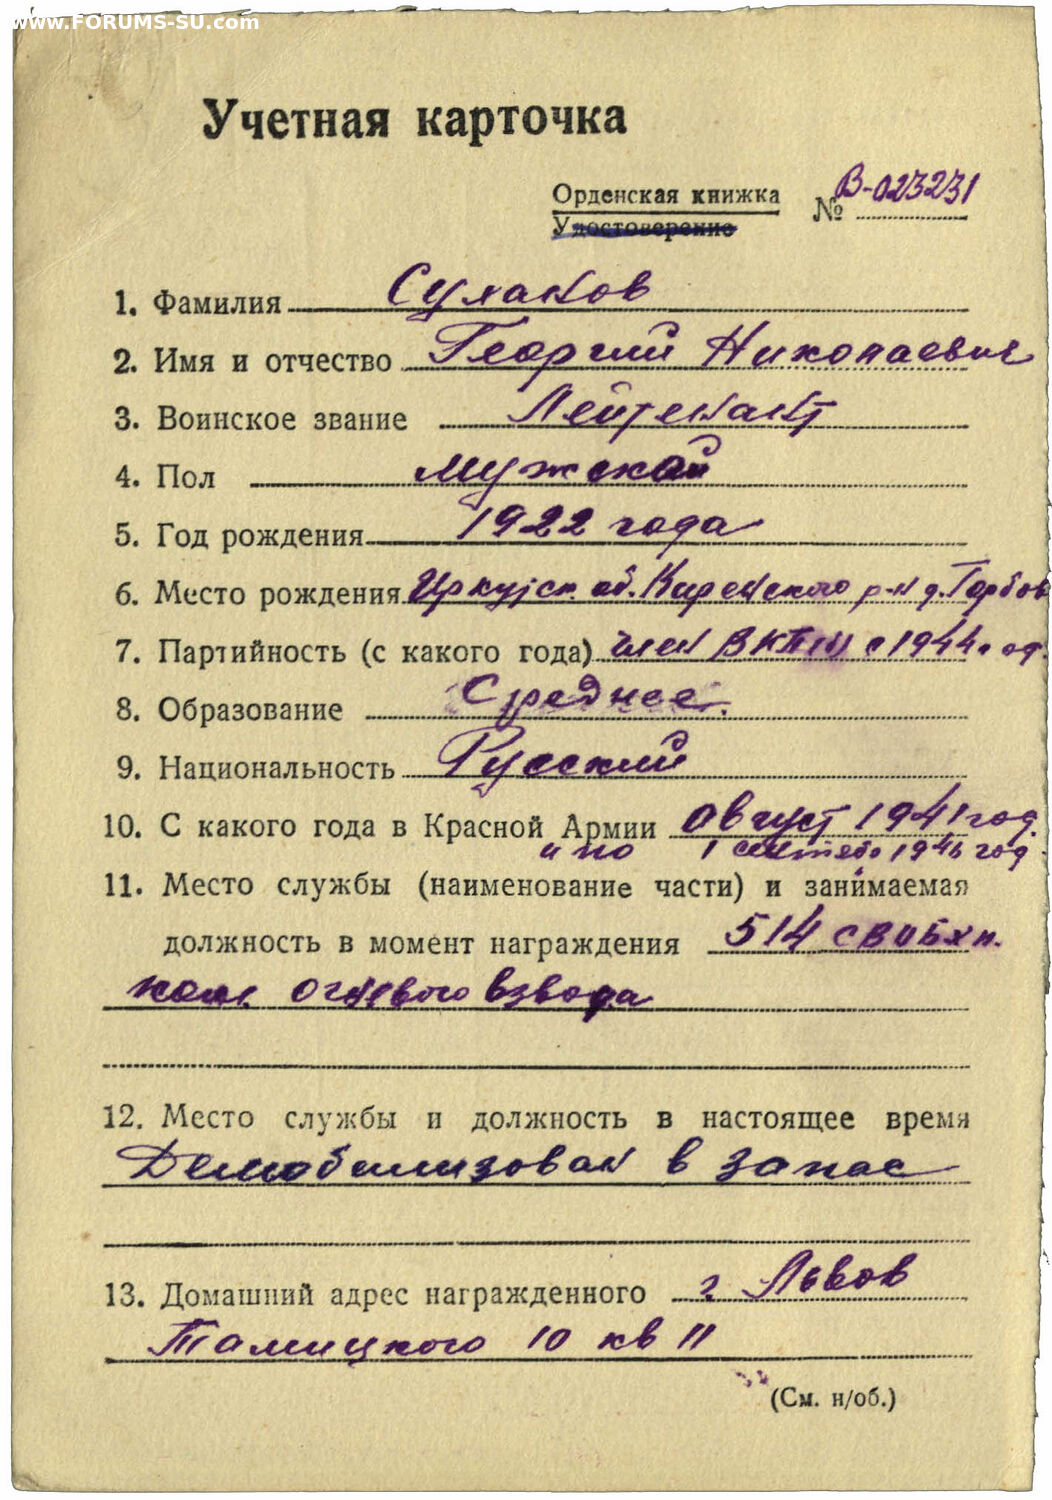 www.FORUMS-SU.com
Учетная карточка
Орденская книжка № В-023231
Удостоверение
1. Фамилия Сулаков
2. Имя и отчество Георгий Николаевич
3. Воинское звание Лейтенант
4. Пол мужской
5. Год рождения 1922 года
6. Место рождения Иркутск. об. Киренского р-н д.
7. Партийность (с какого года) член ВКП(б) с 1944
8. Образование Среднее.
9. Национальность Русский
10. С какого года в Красной Армии Август 1941 год.
и по 1 1946 год
11. Место службы (наименование части) и занимаемая
должность в момент награждения 514
ком. огневого взвода
12. Место службы и должность в настоящее время
Демобилизован в запас
13. Домашний адрес награжденного г Львов
10 кв 11
(См. н/об.)